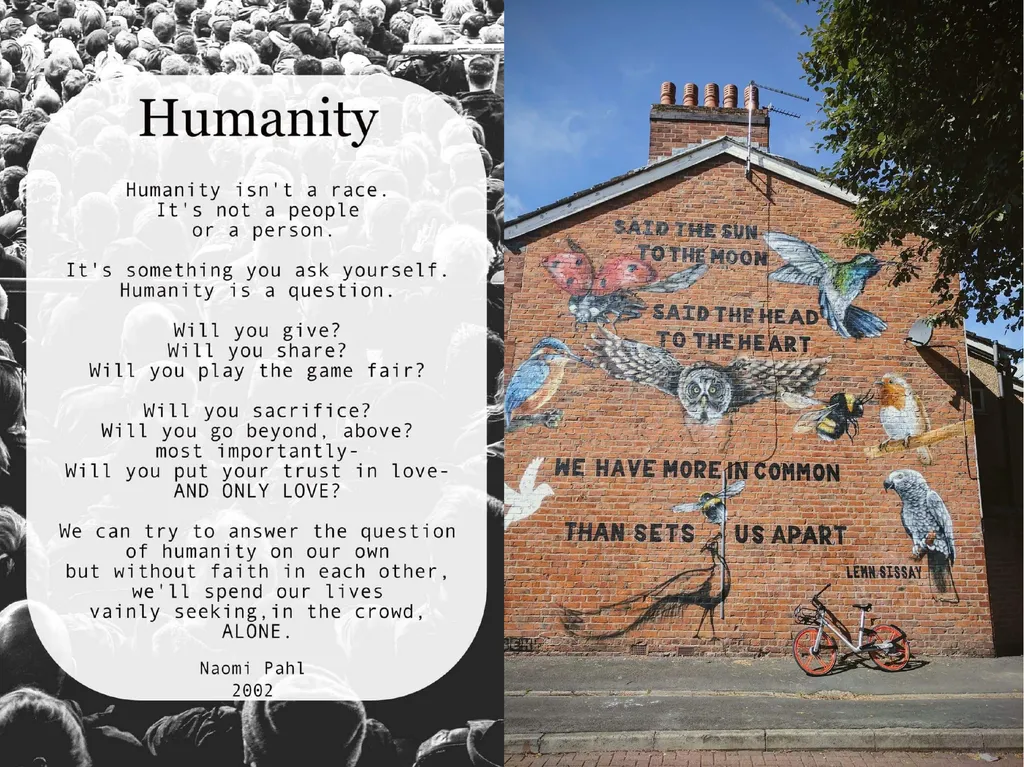 Humanity
Humanity isn't a race.
It's not a people
or a person.
It's something you ask yourself.
Humanity is a question.
Will you give?
Will you share?
Will you play the game fair?
Will you sacrifice?
Will you go beyond, above?
most importantly-
Will you put your trust in love-
AND ONLY LOVE?
We can try to answer the question
of humanity on our own
but without faith in each other,
we'll spend our lives
vainly seeking,in the crowd,
ALONE.
Naomi Pahl
2002
SAID THE SUN
TO THE MOON
SAID THE HEAD
TO THE HEART
WE HAVE MORE IN COMMON
THAN SETS US APART
LEMN SISSAY